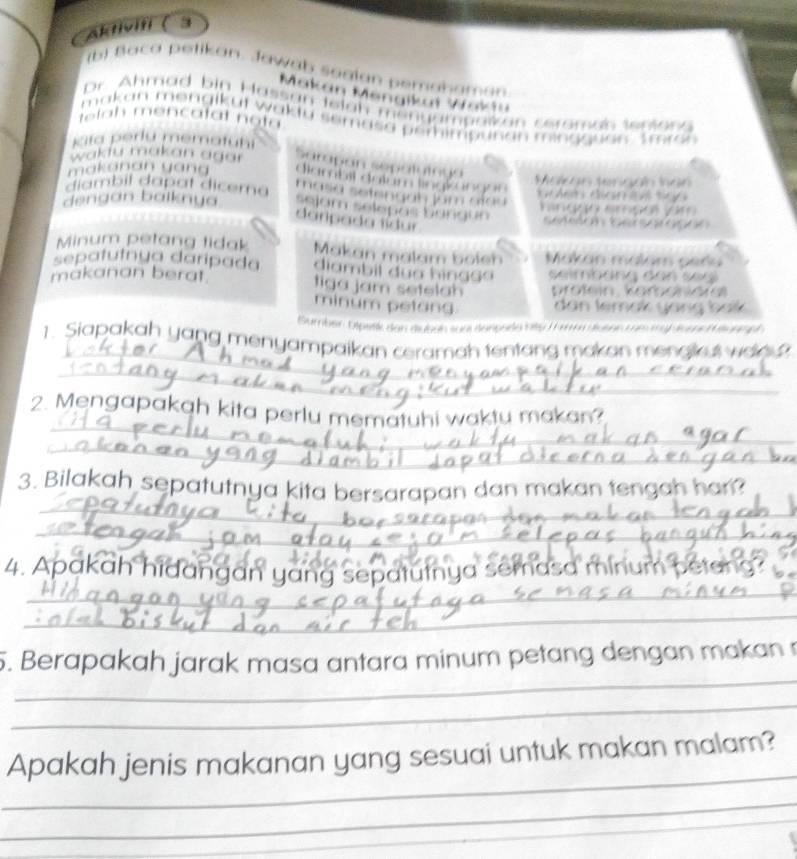 Aktiviti 3
(b) Baca petikan. Jawab soalan pemahaman.
Makan Mengikut Waktu
Dr. Ahmad bin Hassan telah menyampaikan ceramah tentang
makan mengikut waktu semasa perhimpunan mingguan. Imran
telah mencatat nota.
Kita perlu mematuhi
waktu makan agar
makanan yang
diambil dapat dicerna
dengan baiknya.
Sarapan sepatutnya
diambil dalam lingkungan
masa setengah jam atau
sejam selepas bangun
daripada tidur.
Makan tengah hari
boleh diambil tiga
hingga empat jam
setelah bersarapan.
Minum petang tidak
sepatutnya daripada
makanan berat.
Makan malam boleh
diambil dua hingga
tiga jam setelah
minum petang.
Makan malam perlu
seimbang dari segi
protein, karbohidrat
dan lemak yang baik.
Sumber: Dipetik dan diubah suai daripada
1. Siapakah yang menyampaikan ceramah tentang makan mengikut waktu?
Doktor Ahmad yang menyampaikan ceramah
tentang makan mengikut waktu
2. Mengapakah kita perlu mematuhi waktu makan?
kita perlu mematuhi waktu makan agar
makanan yang diambil dapat dicerna dengan ba
3. Bilakah sepatutnya kita bersarapan dan makan tengah hari?
Sepatutnya kita bersarapan dan makan tengah h
setengah jam atau sejam selepas bangun hing
4. Apakah hidangan yang sepatutnya semasa minum petang?
Hidangan yang sepatutnya semasa minum p
ialah biskut dan air teh
5. Berapakah jarak masa antara minum petang dengan makan
Apakah jenis makanan yang sesuai untuk makan malam?